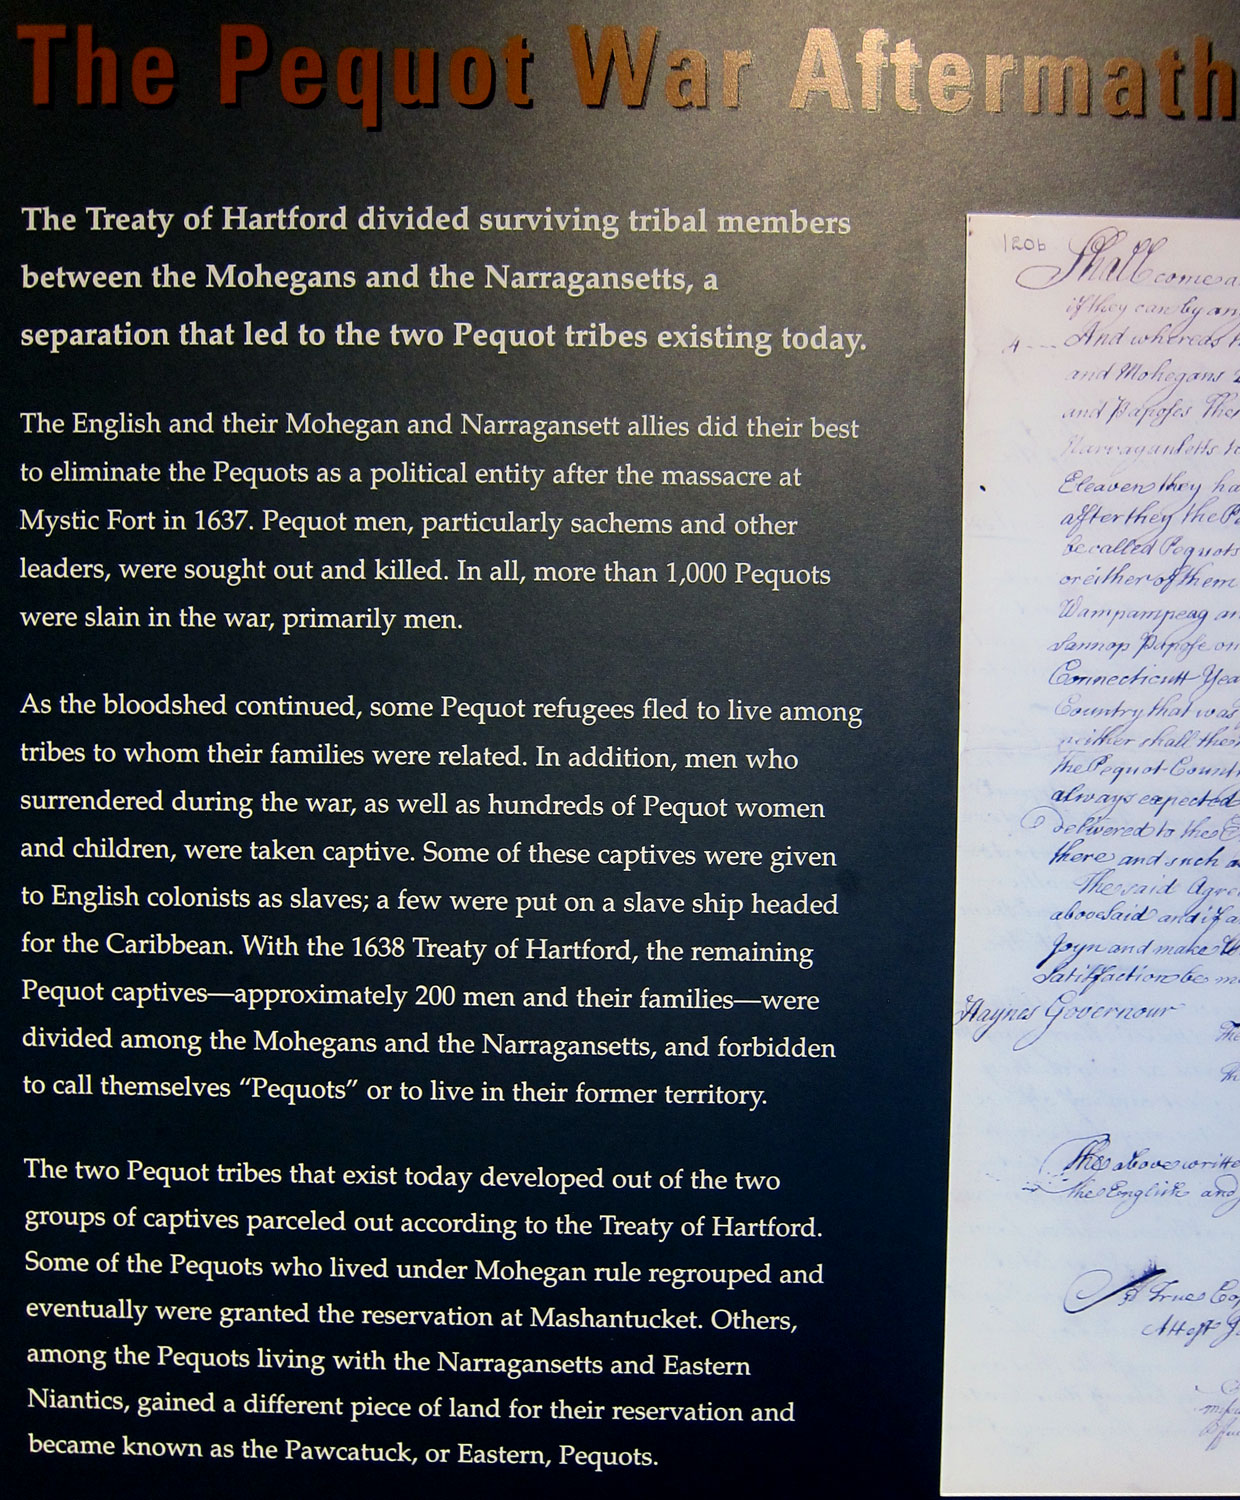 The Pequot War Aftermath
The Treaty of Hartford divided surviving tribal members
between the Mohegans and the Narragansetts, a
separation that led to the two Pequot tribes existing today.
The English and their Mohegan and Narragansett allies did their best
to eliminate the Pequots as a political entity after the massacre at
Mystic Fort in 1637. Pequot men, particularly sachems and other
leaders, were sought out and killed. In all, more than 1,000 Pequots
were slain in the war, primarily men.
As the bloodshed continued, some Pequot refugees fled to live among
tribes to whom their families were related. In addition, men who
surrendered during the war, as well as hundreds of Pequot women
and children, were taken captive. Some of these captives were given
to English colonists as slaves; a few were put on a slave ship headed
for the Caribbean. With the 1638 Treaty of Hartford, the remaining
Pequot captives—approximately 200 men and their families—were
divided among the Mohegans and the Narragansetts, and forbidden
to call themselves “Pequots” or to live in their former territory.
The two Pequot tribes that exist today developed out of the two
groups of captives parceled out according to the Treaty of Hartford.
Some of the Pequots who lived under Mohegan rule regrouped and
eventually were granted the reservation at Mashantucket. Others,
among the Pequots living with the Narragansetts and Eastern
Niantics, gained a different piece of land for their reservation and
became known as the Pawcatuck, or Eastern, Pequots.
120b
Shall come
if they can by
4 And whereas
and Mohegans
and Paposes
Eleaven they
after they the
be called Pequots
or either of them
Wampampeag
Sannop Papose
Connecticutt
Country that was
neither shall
the Pequot Count
always expected
Delivered to the
there and such
The said
abovesaid and if
Joyn and make
Satisfaction be
Haynes Governour
The above
the English and
A True
Attest